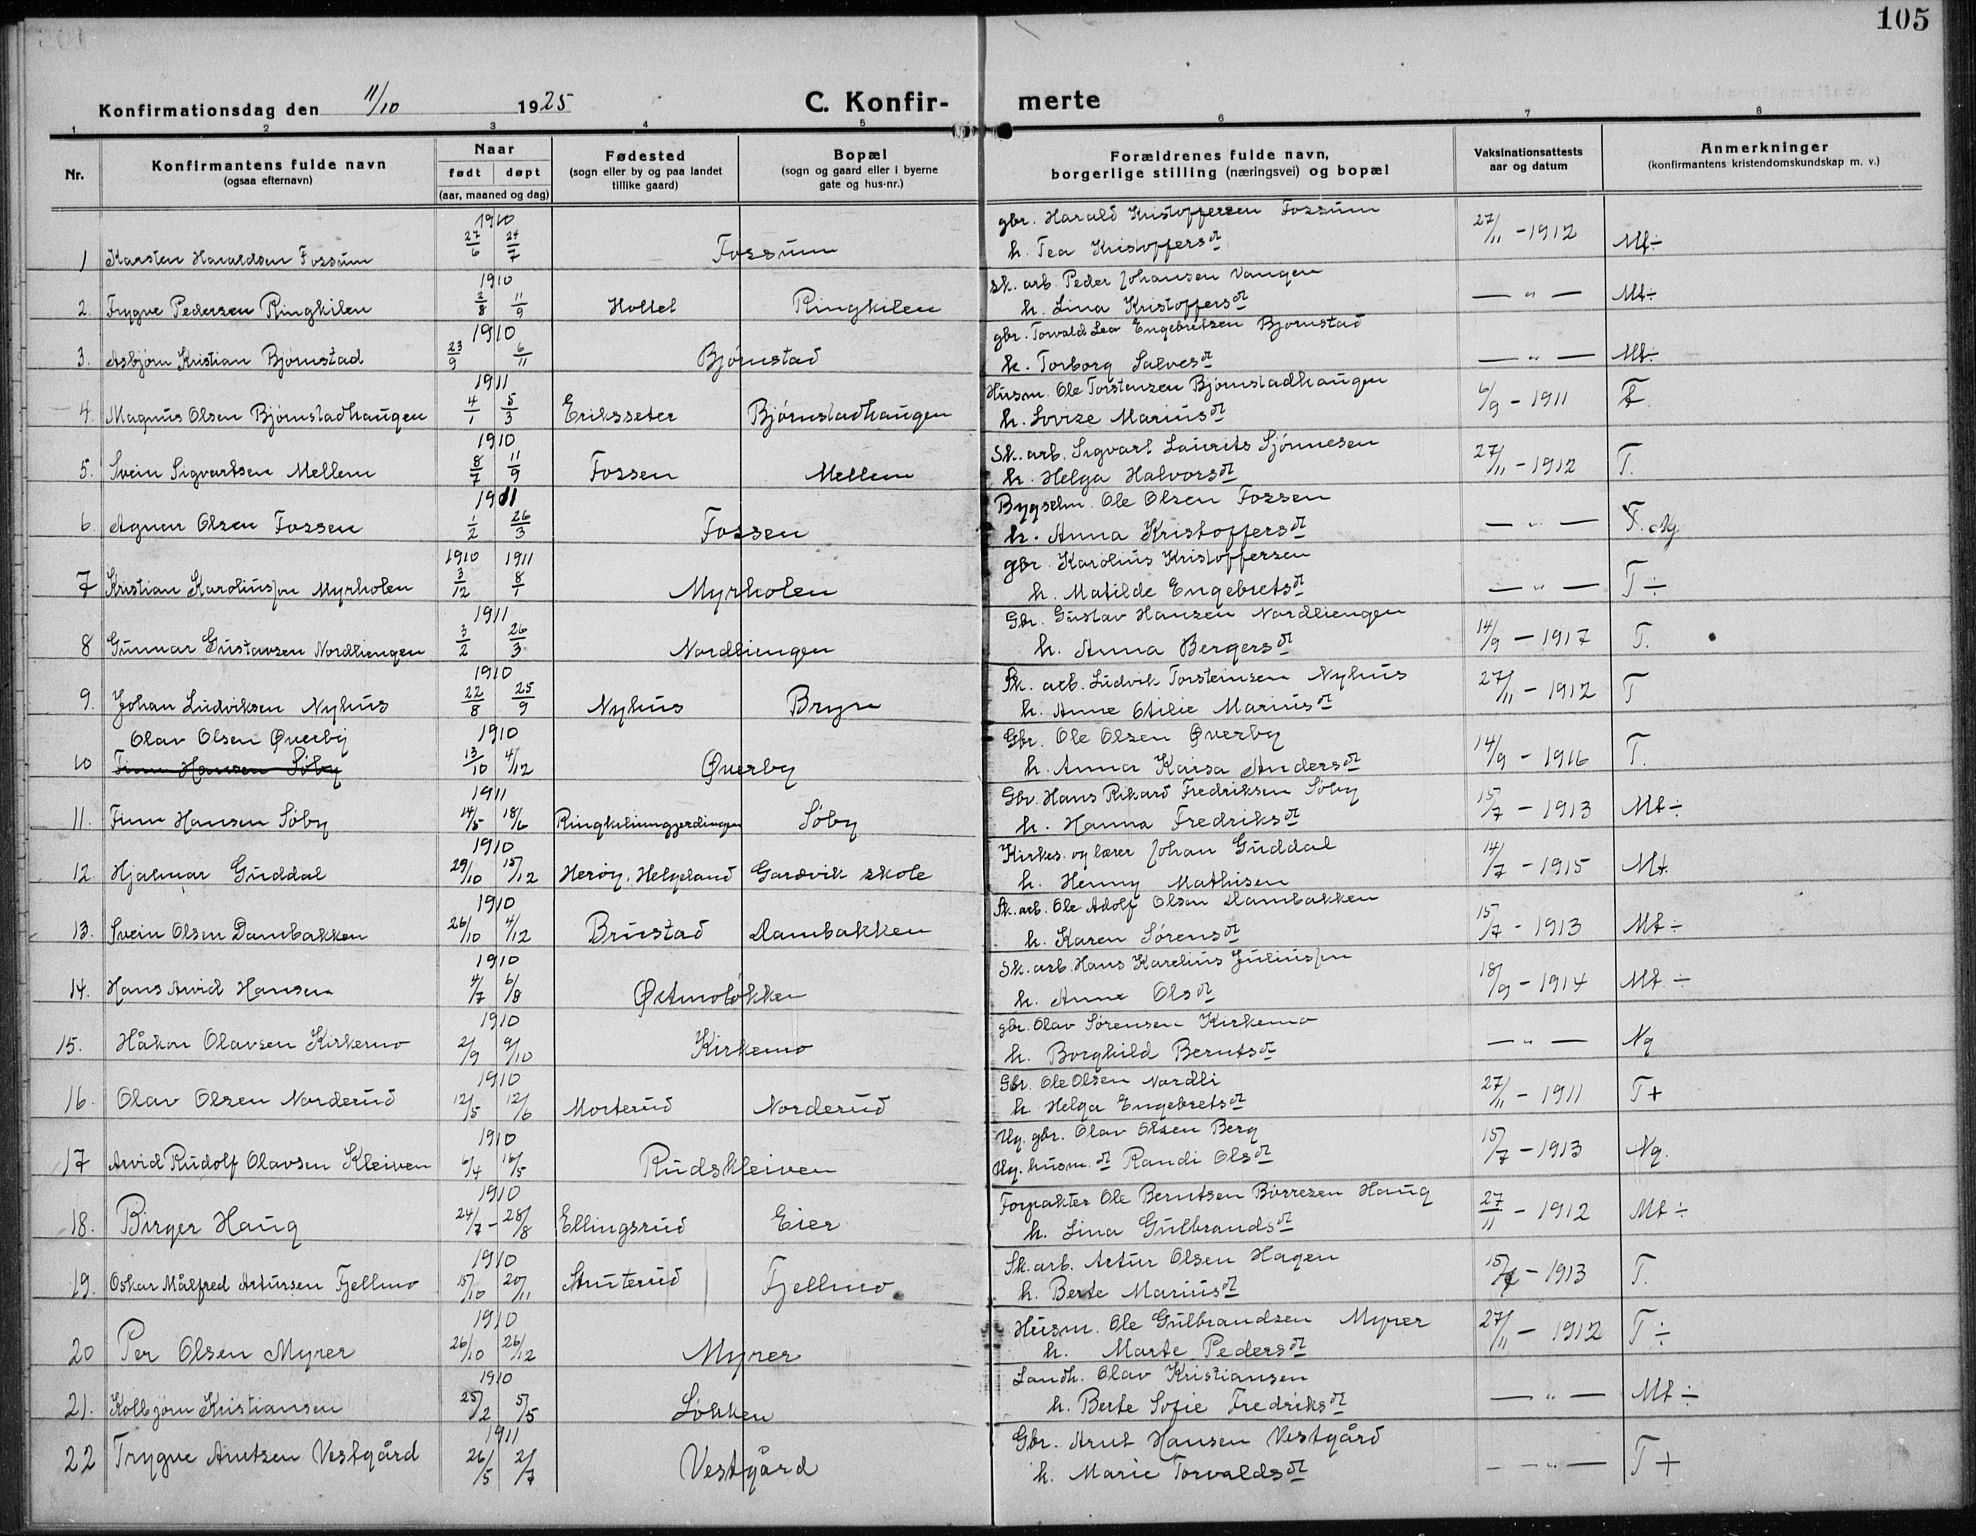 105
Konfirmationsdag den 11/10 1925 C. Konfir- merte
1 2 3 4 5 6 7 8
Nr. Konfirmantens fulde navn (ogsaa efternavn) Naar født døpt (aar, maaned og dag) Fødested (sogn eller by og paa landet tillike gaard) Bopæl (sogn og gaard eller i byerne gate og hus-nr.) Forældrenes fulde navn, borgerlige stilling (næringsvei) og bopæl Vaksinationsattests aar og datum Anmerkninger (konfirmantens kristendomskundskap m. v.)
1910 gbr. Harald Kristoffersen Fossum
1 Karsten Haraldsen Fossum 27/6 24/7 Fossum h. Tea Kristoffersdt 27/11 - 1912 Mt÷
1910 Sk. arb. Peder Johansen Vangen
2. Trygve Pedersen Ringkilen 2/8 11/9 Holtet Ringkilen h. Lina Kristoffersdt — " — Mt÷
1910 gbr. Torvald Leo Engebretsen Bjørnstad
3. Asbjørn Kristian Bjørnstad 23/9 6/11 Bjørnstad h. Torborg Salvesdt — " — Mt÷
1911 Husm. Ole Torstensen Bjørnstadhaugen
4. Magnus Olsen Bjørnstadhaugen 4/1 5/3 Eriksseter Bjørnstadhaugen h. Lovise Mariusdt 6/9 - 1911 T.
1910 Sk. arb. Sigvart Lauritz Sjønnesen
5. Svein Sigvartsen Mellem 8/7 11/9 Fossen Mellem h. Helga Halvorsdt 27/11 - 1912 T.
1911 Bygselm. Ole Olsen Fossen
6. Agnar Olsen Fossen 1/2 26/3 Fossen h. Anna Kristoffersdt — " — T.
1910 1911 gbr. Karolius Kristoffersen
7 Kristian Karoliussen Myrholen 3/12 8/1 Myrholen h. Matilde Engebretsdt — " — T÷
1911 Gbr. Gustav Hansen Nordliengen
8 Gunnar Gustavsen Nordliengen 3/2 26/3 Nordliengen h. Anna Bergersdt 14/9 - 1917 T.
1910 Sk. arb. Ludvik Torsteinsen Nyhus
9. Johan Ludviksen Nyhus 22/8 25/9 Nyhus Bryn h. Anne Otilie Mariusdt 27/11 - 1912 T
Olav Olsen Øverby 1910 Gbr. Ole Olsen Øverby
10 Finn Hansen Söby 13/10 4/12 Øverby h. Anna Kaisa Andersdt 14/9 - 1916 T.
1911 Gbr. Hans Rikard Fredriksen Söby
11. Finn Hansen Söby 14/5 18/6 Ringkiliengjerdingen Söby h. Hanna Fredriksdt 15/7 - 1913 Mt÷
1910 Kirkes. og lærer Johan Guddal
12 Hjalmar Guddal 29/10 15/12 Herøy, Helgeland Gardvik skole h. Henny Mathisen 14/7 - 1915 Mt.
1910 Sk. arb. Ole Adolf Olsen Dambakken
13. Svein Olsen Dambakken 26/10 4/12 Brustad Dambakken h. Karen Sørensdt 15/7 - 1913 Mt÷
1910 Sk. arb. Hans Karelius Juliussen
14. Hans Arvid Hansen 4/7 6/8 Østmoløkken h. Anne Olsdt 18/9 - 1914 Mt. ÷
1910 gbr. Olav Sørensen Kirkemo
15. Håkon Olavsen Kirkemo 2/9 9/10 Kirkemo h. Borghild Berntsdt — " — Ng
1910 Gbr. Ole Olsen Nordli
16. Olav Olsen Norderud 12/5 12/6 Morterud Norderud h. Helga Engebretsdt 27/11 - 1911 T+
1910 Ug. gbr. Olav Olsen Berg
17 Arvid Rudolf Olavsen Kleiven 6/4 16/5 Rudskleiven Ug. husm. dt Randi Olsdt 15/7 - 1913 Ng.
1910 Forpakter Ole Berntsen Børresen Haug
18. Birger Haug 24/7 - 28/8 Ellingsrud Eier h. Lina Gulbrandsdt 27/11 - 1912 Mt÷
1910 Sk. arb. Artur Olsen Hagen
19. Oskar Målfred Artursen Fjellmo 15/10 20/11 Struterud Fjellmo h. Berte Mariusdt 15/7 - 1913 T.
1910 Husm. Ole Gulbrandsen Myrer
20 Per Olsen Myrer 26/10 26/12 Myrer h. Marte Pedersdt 27/11 - 1912 T÷
1910 Landh. Olav Kristiansen
21. Kolbjørn Kristiansen 25/2 5/5 Løkken h. Berte Sofie Fredriksdt — " — Mt÷
1911 Gbr. Arnt Hansen Vestgård
22 Trygve Arntsen Vestgård 26/5 2/7 Vestgård h. Marie Torvaldsdt — " — T+